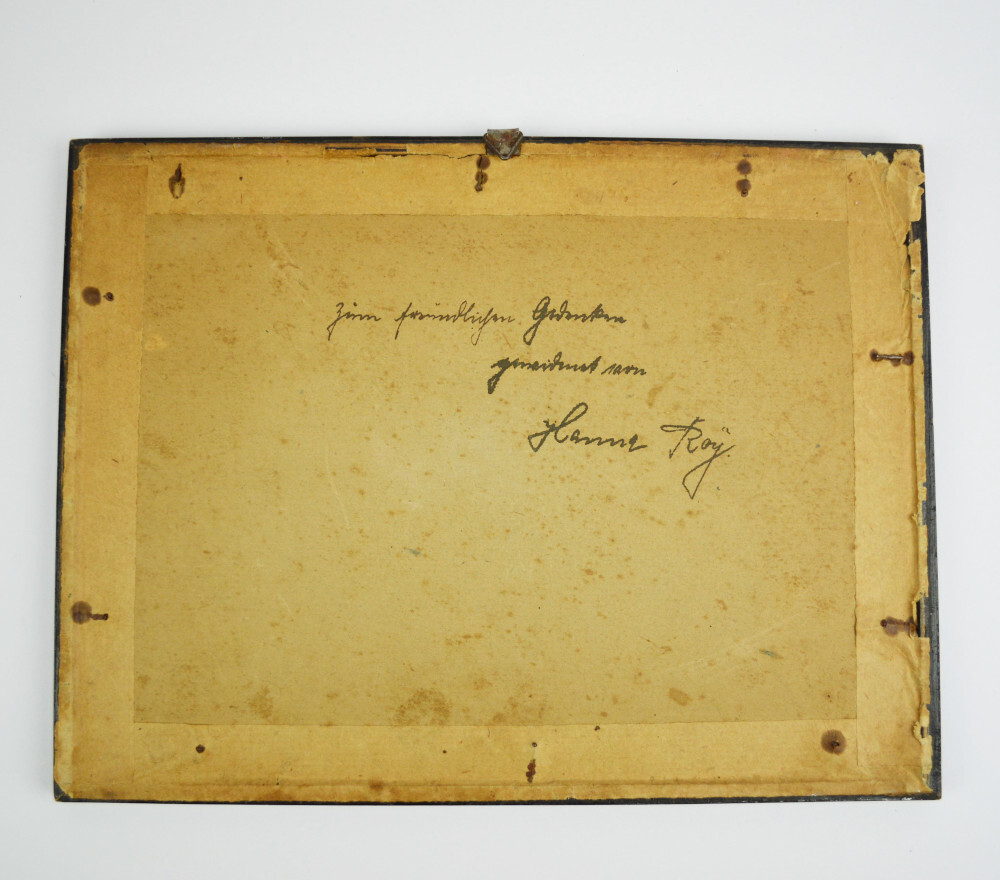 Zum freundlichen Gedenken
gewidmet von
Hanna Roÿ.